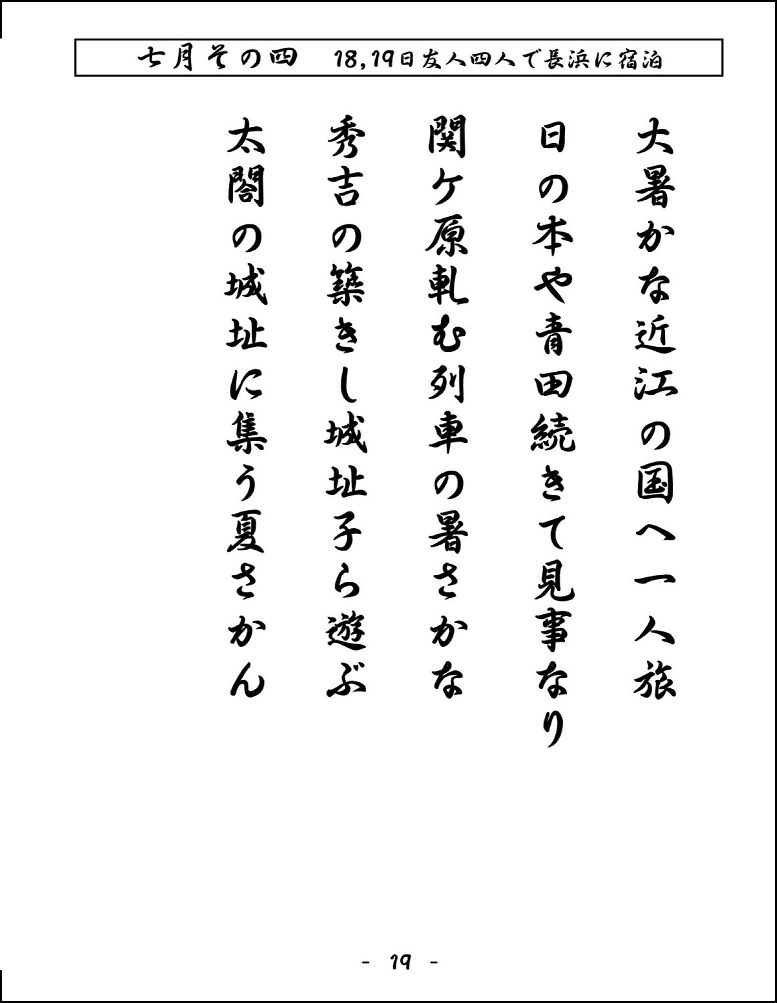 七月その四　18,19日友人四人で長浜に宿泊
大暑かな近江の国へ一人旅
日の本や青田続きて見事なり
関ケ原軋む列車の暑さかな
秀吉の築きし城址子ら遊ぶ
太閤の城址に集う夏さかん
- 19 -